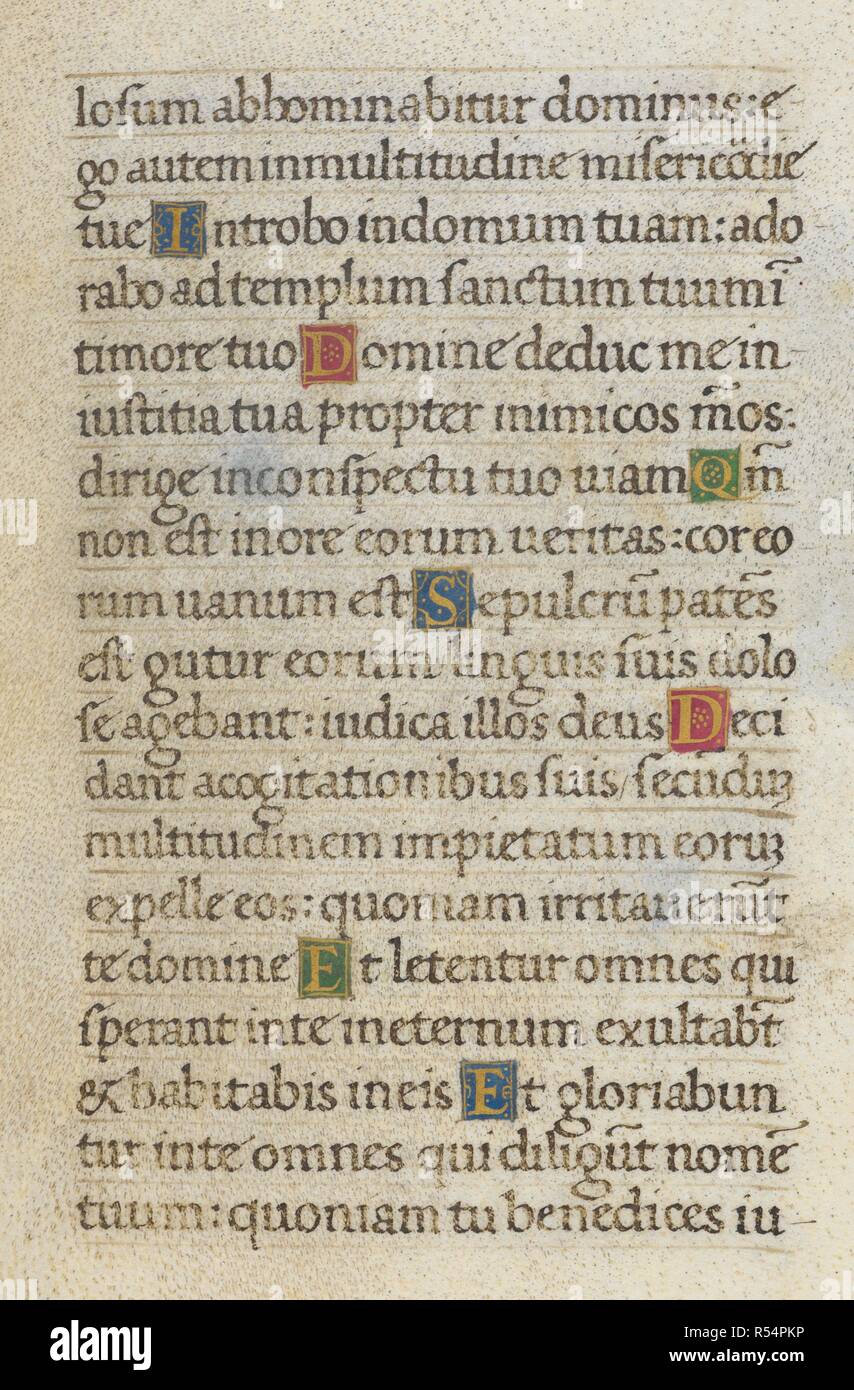 losum abhominabitur dominus: e-
go autem in multitudine misericōdie
tue Introbo in domum tuam: ado
rabo ad templum sanctum tuum ī
timore tuo Domine deduc me in-
iustitia tua propter inimicos m̄os:
dirige in conspectu tuo uiam Qm̄
non est in ore eorum ueritas: cor eo
rum uanum est Sepulcrū patēs
est gutur eorum linguis suis dolo
se agebant: iudica illos deus Deci
dant a cogitationibus suis / secūduꝫ
multitudinem impietatum eoruꝫ
expelle eos: quoniam irritauerūt
te domine Et letentur omnes qui
sperant in te in eternum exultabt̄
& habitabis in eis Et gloriabun
tur in te omnes qui diligūt nomē
tuum: quoniam tu benedices iu-
alamy
Image ID: R54PKP
www.alamy.com